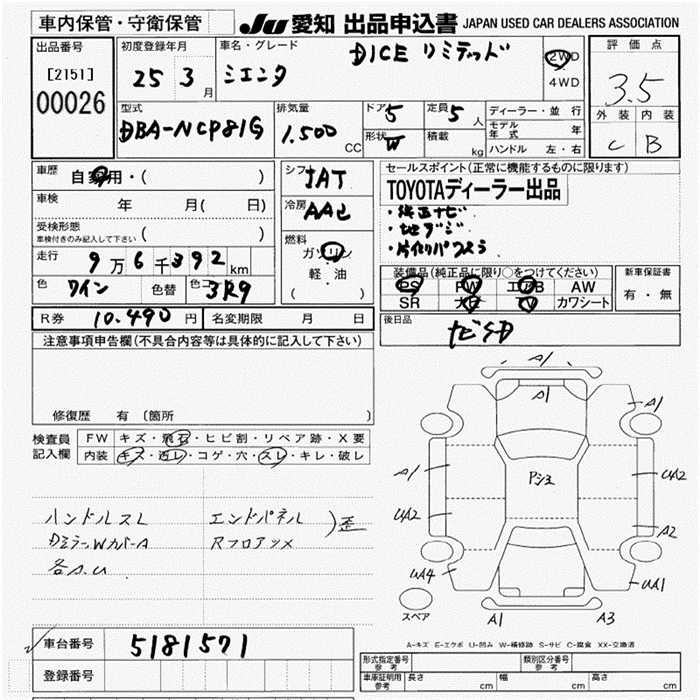 車内保管・守衛保管
JU 愛知 出品申込書 JAPAN USED CAR DEALERS ASSOCIATION
出品番号
[2151]
00026
初度登録年月
25 3 月
車名・グレード
DICE リミテッド
シエンタ
2WD
4WD
評価点
3.5
外装 内装
C B
型式
DBA-NCP81G
排気量
1.500 CC
ドア 5
形状 W
定員 5 人
積載 kg
ディーラー・並行
モデル年式 年
ハンドル 左・右
車歴
自家用・( )
車検
年 月( 日)
受検形態
車検付きのみ記入して下さい ( )
走行
9万6千392km
色 ワイン 色替 色コ 3R9
シフト IAT
冷房 AAC
燃料
ガソリン
軽・油
( )
セールスポイント(正常に機能するものに限ります)
TOYOTAディーラー出品
・純正ナビ
・地デジ
・片側パワスラ
装備品(純正品に限り○をつけてください)
PS PW エアB AW
SR TV カワシート
新車保証書
有・無
R券 10.490 円 名変期限 月 日
後日品
ナビSD
注意事項申告欄(不具合内容等は具体的に記入して下さい)
修復歴 有〔箇所 〕
検査員記入欄
FW キズ・飛石・ヒビ割・リペア跡・X要
内装 キズ・汚レ・コゲ・穴・スレ・キレ・破レ
ハンドルスレ
DミラーWカバーA
各A.U
エンドパネル
Rフロアツメ
)歪
A1
A1
A1
A1
Pシュ
UA2
UA2
A2
UA4
UA1
スペア
A1
A3
A-キズ E-エクボ U-凹み W-補修跡 S-サビ C-腐食 XX-交換済
車台番号 5181571
登録番号
形式指定番号 参考
類別区分番号 参考
車庫証明用 参考
長さ cm 幅 cm 高さ cm